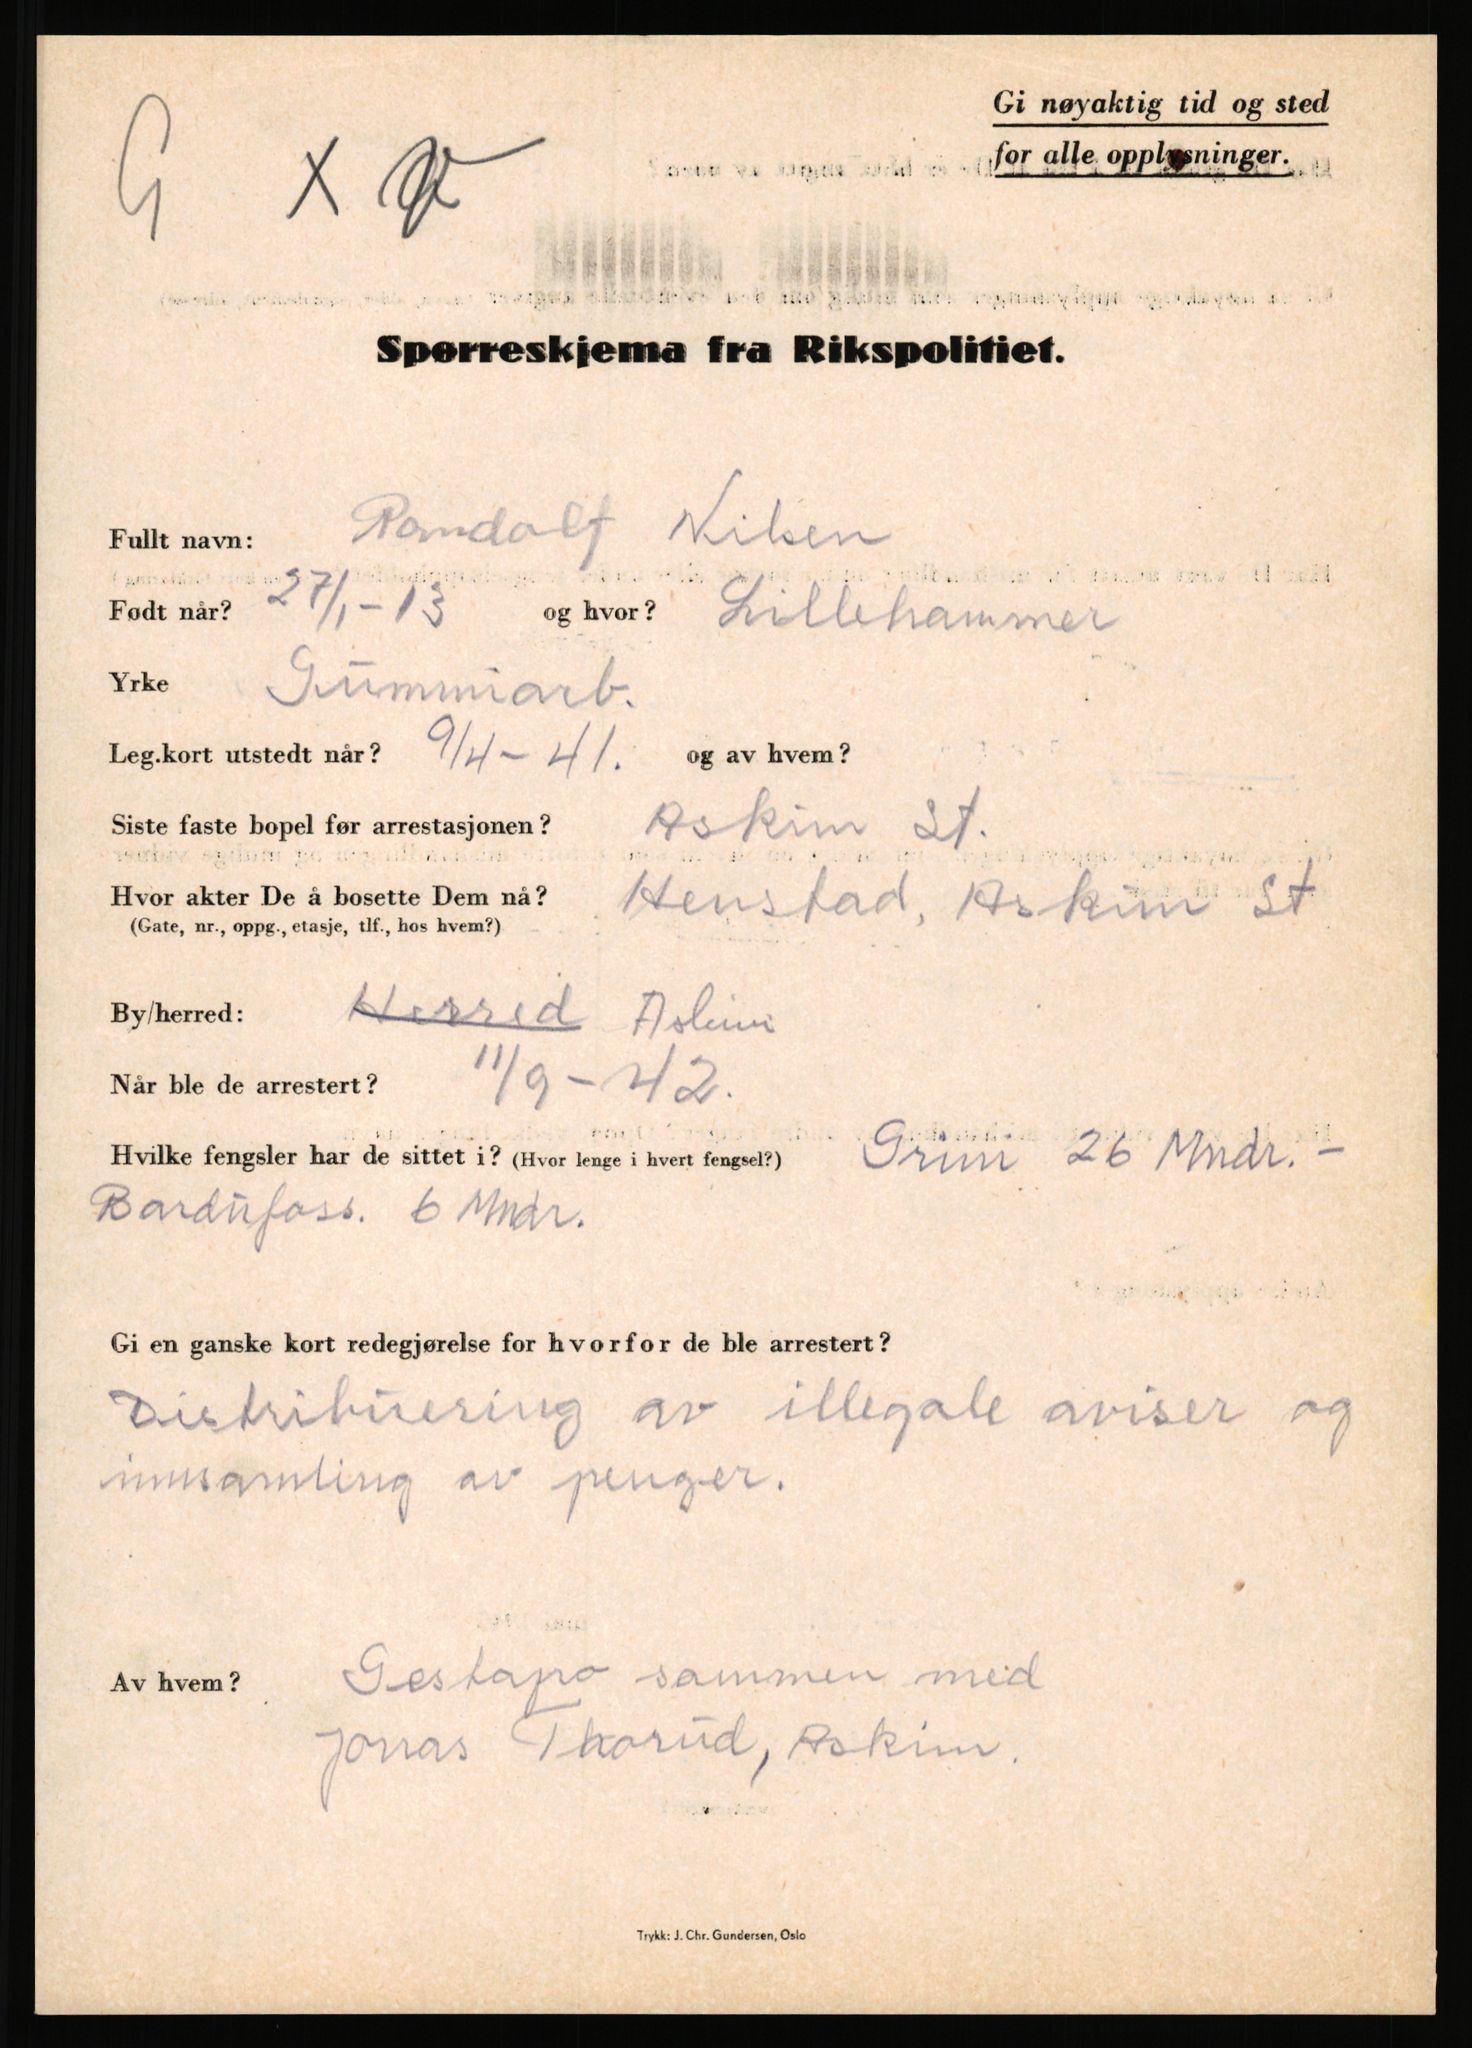 G X
Gi nøyaktig tid og sted
for alle opplysninger.
Spørreskjema fra Rikspolitiet.
Fullt navn: Randolf Nilsen
Født når? 27/1-13 og hvor? Lillehammer
Yrke Gummiarb.
Leg.kort utstedt når? 9/4-41. og av hvem?
Siste faste bopel før arrestasjonen? Askim St.
Hvor akter De å bosette Dem nå? Henstad, Askim St
(Gate, nr., oppg., etasje, tlf., hos hvem?)
By/herred: Herred Askim
Når ble de arrestert? 11/9-42.
Hvilke fengsler har de sittet i? (Hvor lenge i hvert fengsel?) Grini 26 Mndr. -
Bardufoss. 6 Mndr.
Gi en ganske kort redegjørelse for hvorfor de ble arrestert?
Distribuering av illegale aviser og
innsamling av penger.
Av hvem? Gestapo sammen med
Jonas Thorud, Askim.
Trykk: J. Chr. Gundersen, Oslo